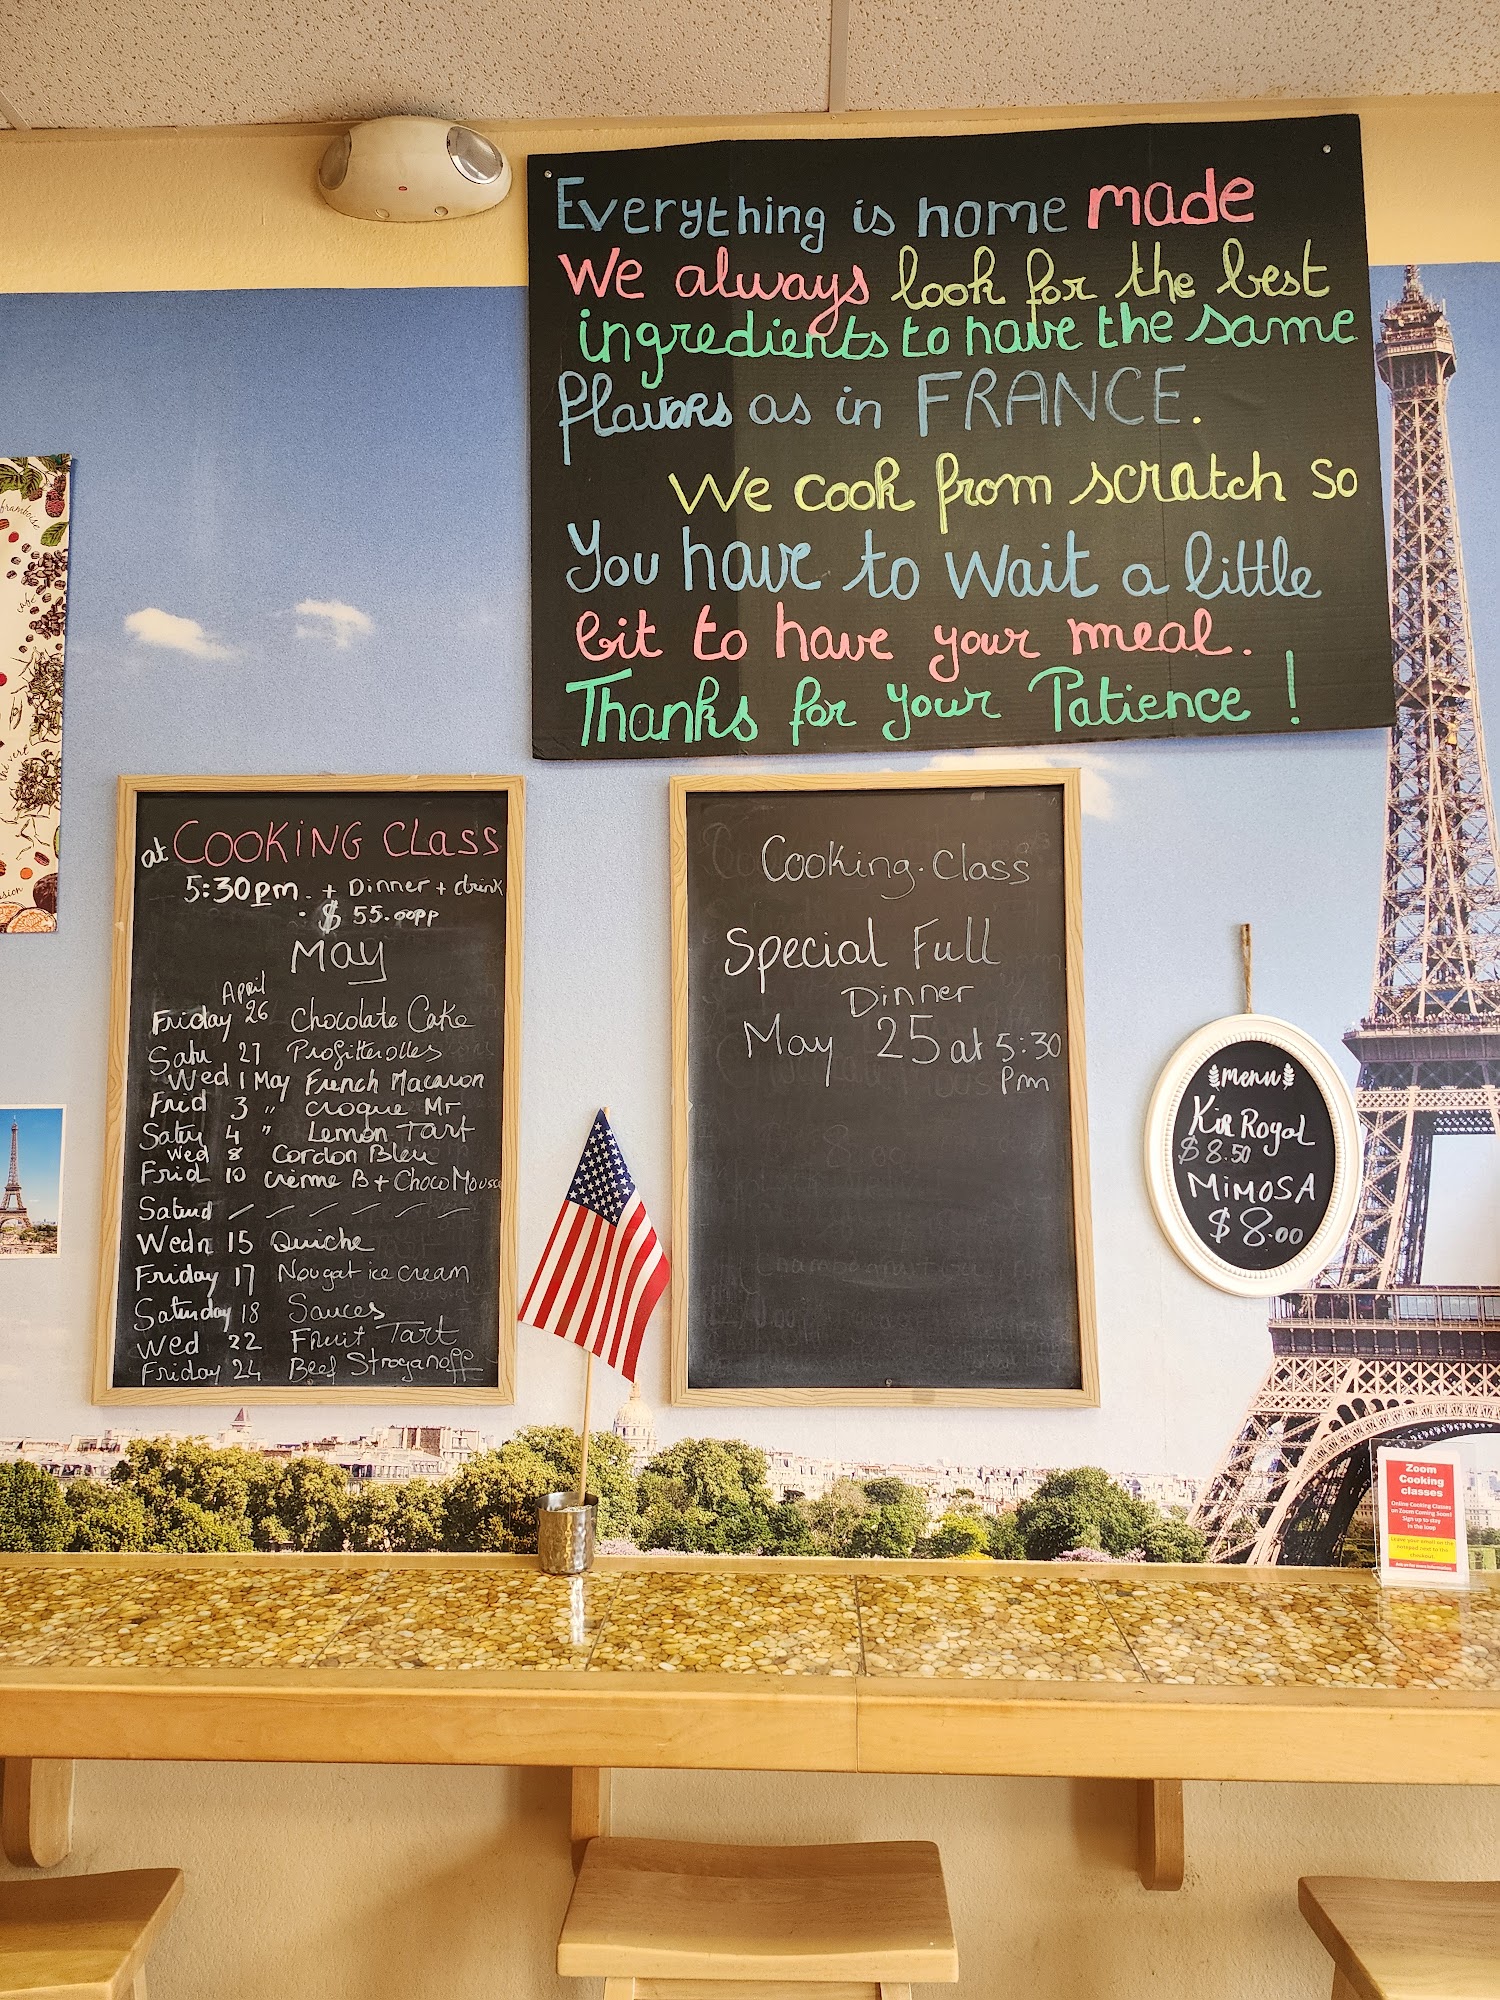 Everything is home made
We always look for the best
ingredients to have the same
flavors as in FRANCE.
We cook from scratch so
You have to wait a little
bit to have your meal.
Thanks for your Patience !
framboise
café
thé vert
at COOKING CLASS
5:30pm + Dinner + drink
$ 55.00pp
May
April
Friday 26 Chocolate Cake
Satu 27 Profitterolles
Wed 1 May French Macaron
Frid 3 " croque Mr
Satu 4 " Lemon Tart
Wed 8 Cordon Bleu
Frid 10 crème B + Choco Mousse
Saturd
Wedn 15 Quiche
Friday 17 Nougat ice cream
Saturday 18 Sauces
Wed 22 Fruit Tart
Friday 24 Beef Stroganoff
Cooking. Class
Special Full
Dinner
May 25 at 5:30
Pm
menu
Kir Royal
$ 8.50
MIMOSA
$ 8.00
Zoom
Cooking
classes
Online Cooking Classes
on Zoom Coming Soon!
Sign up to stay
in the loop
Leave your email on the
notepad next to the
checkout.